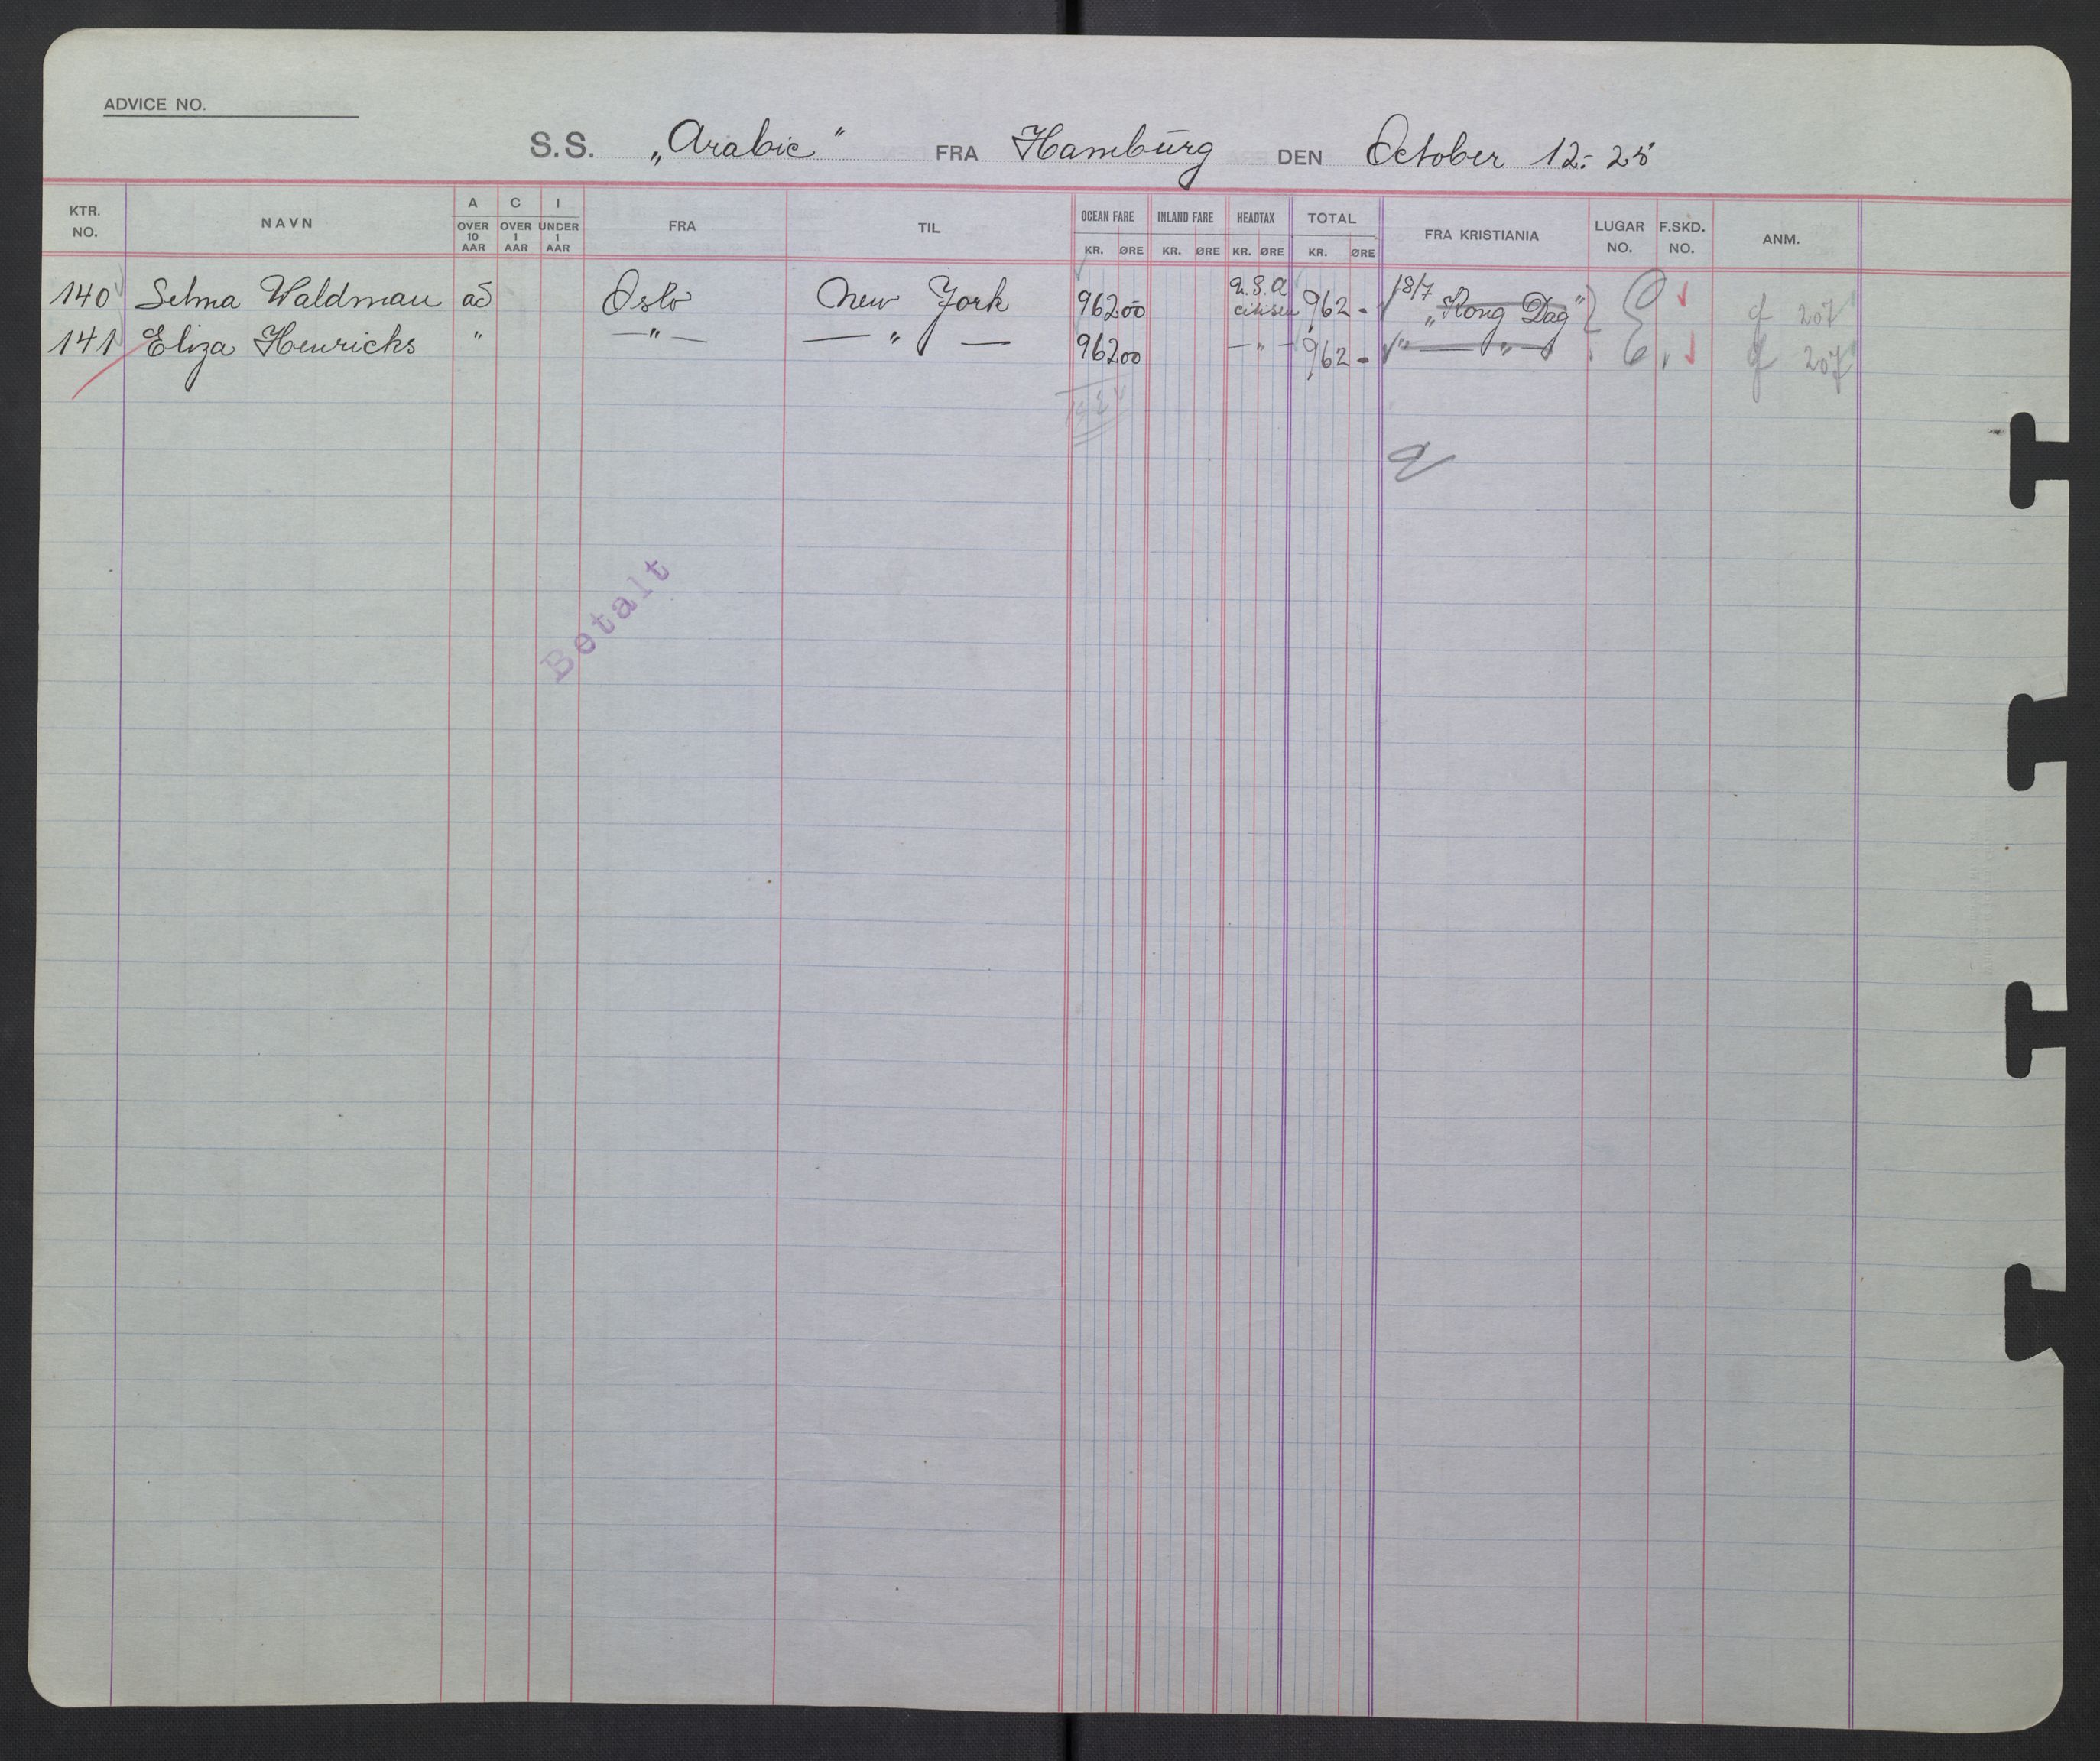 ADVICE NO.
S.S. „Arabic“ FRA Hamburg DEN October 12.- 25
KTR. NO. NAVN A OVER 10 AAR C OVER 1 AAR I UNDER 1 AAR FRA TIL OCEAN FARE KR. ØRE INLAND FARE KR. ØRE HEADTAX KR. ØRE TOTAL KR. ØRE FRA KRISTIANIA LUGAR NO. F.SKD. NO. ANM.
140 Selma Waldman ad Oslo New York 962 00 U.S.A citisen 962 - 18/7 „Kong Dag“ 207
141 Eliza Henricks " — " — — " — 962 00 — " — 962 - " — " — 207
1924
Betalt